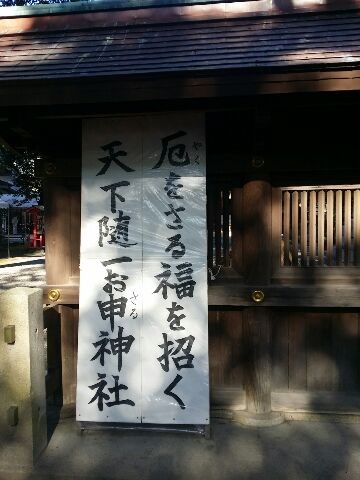 厄をさる福を招く
天下随一お申神社
やく
さる